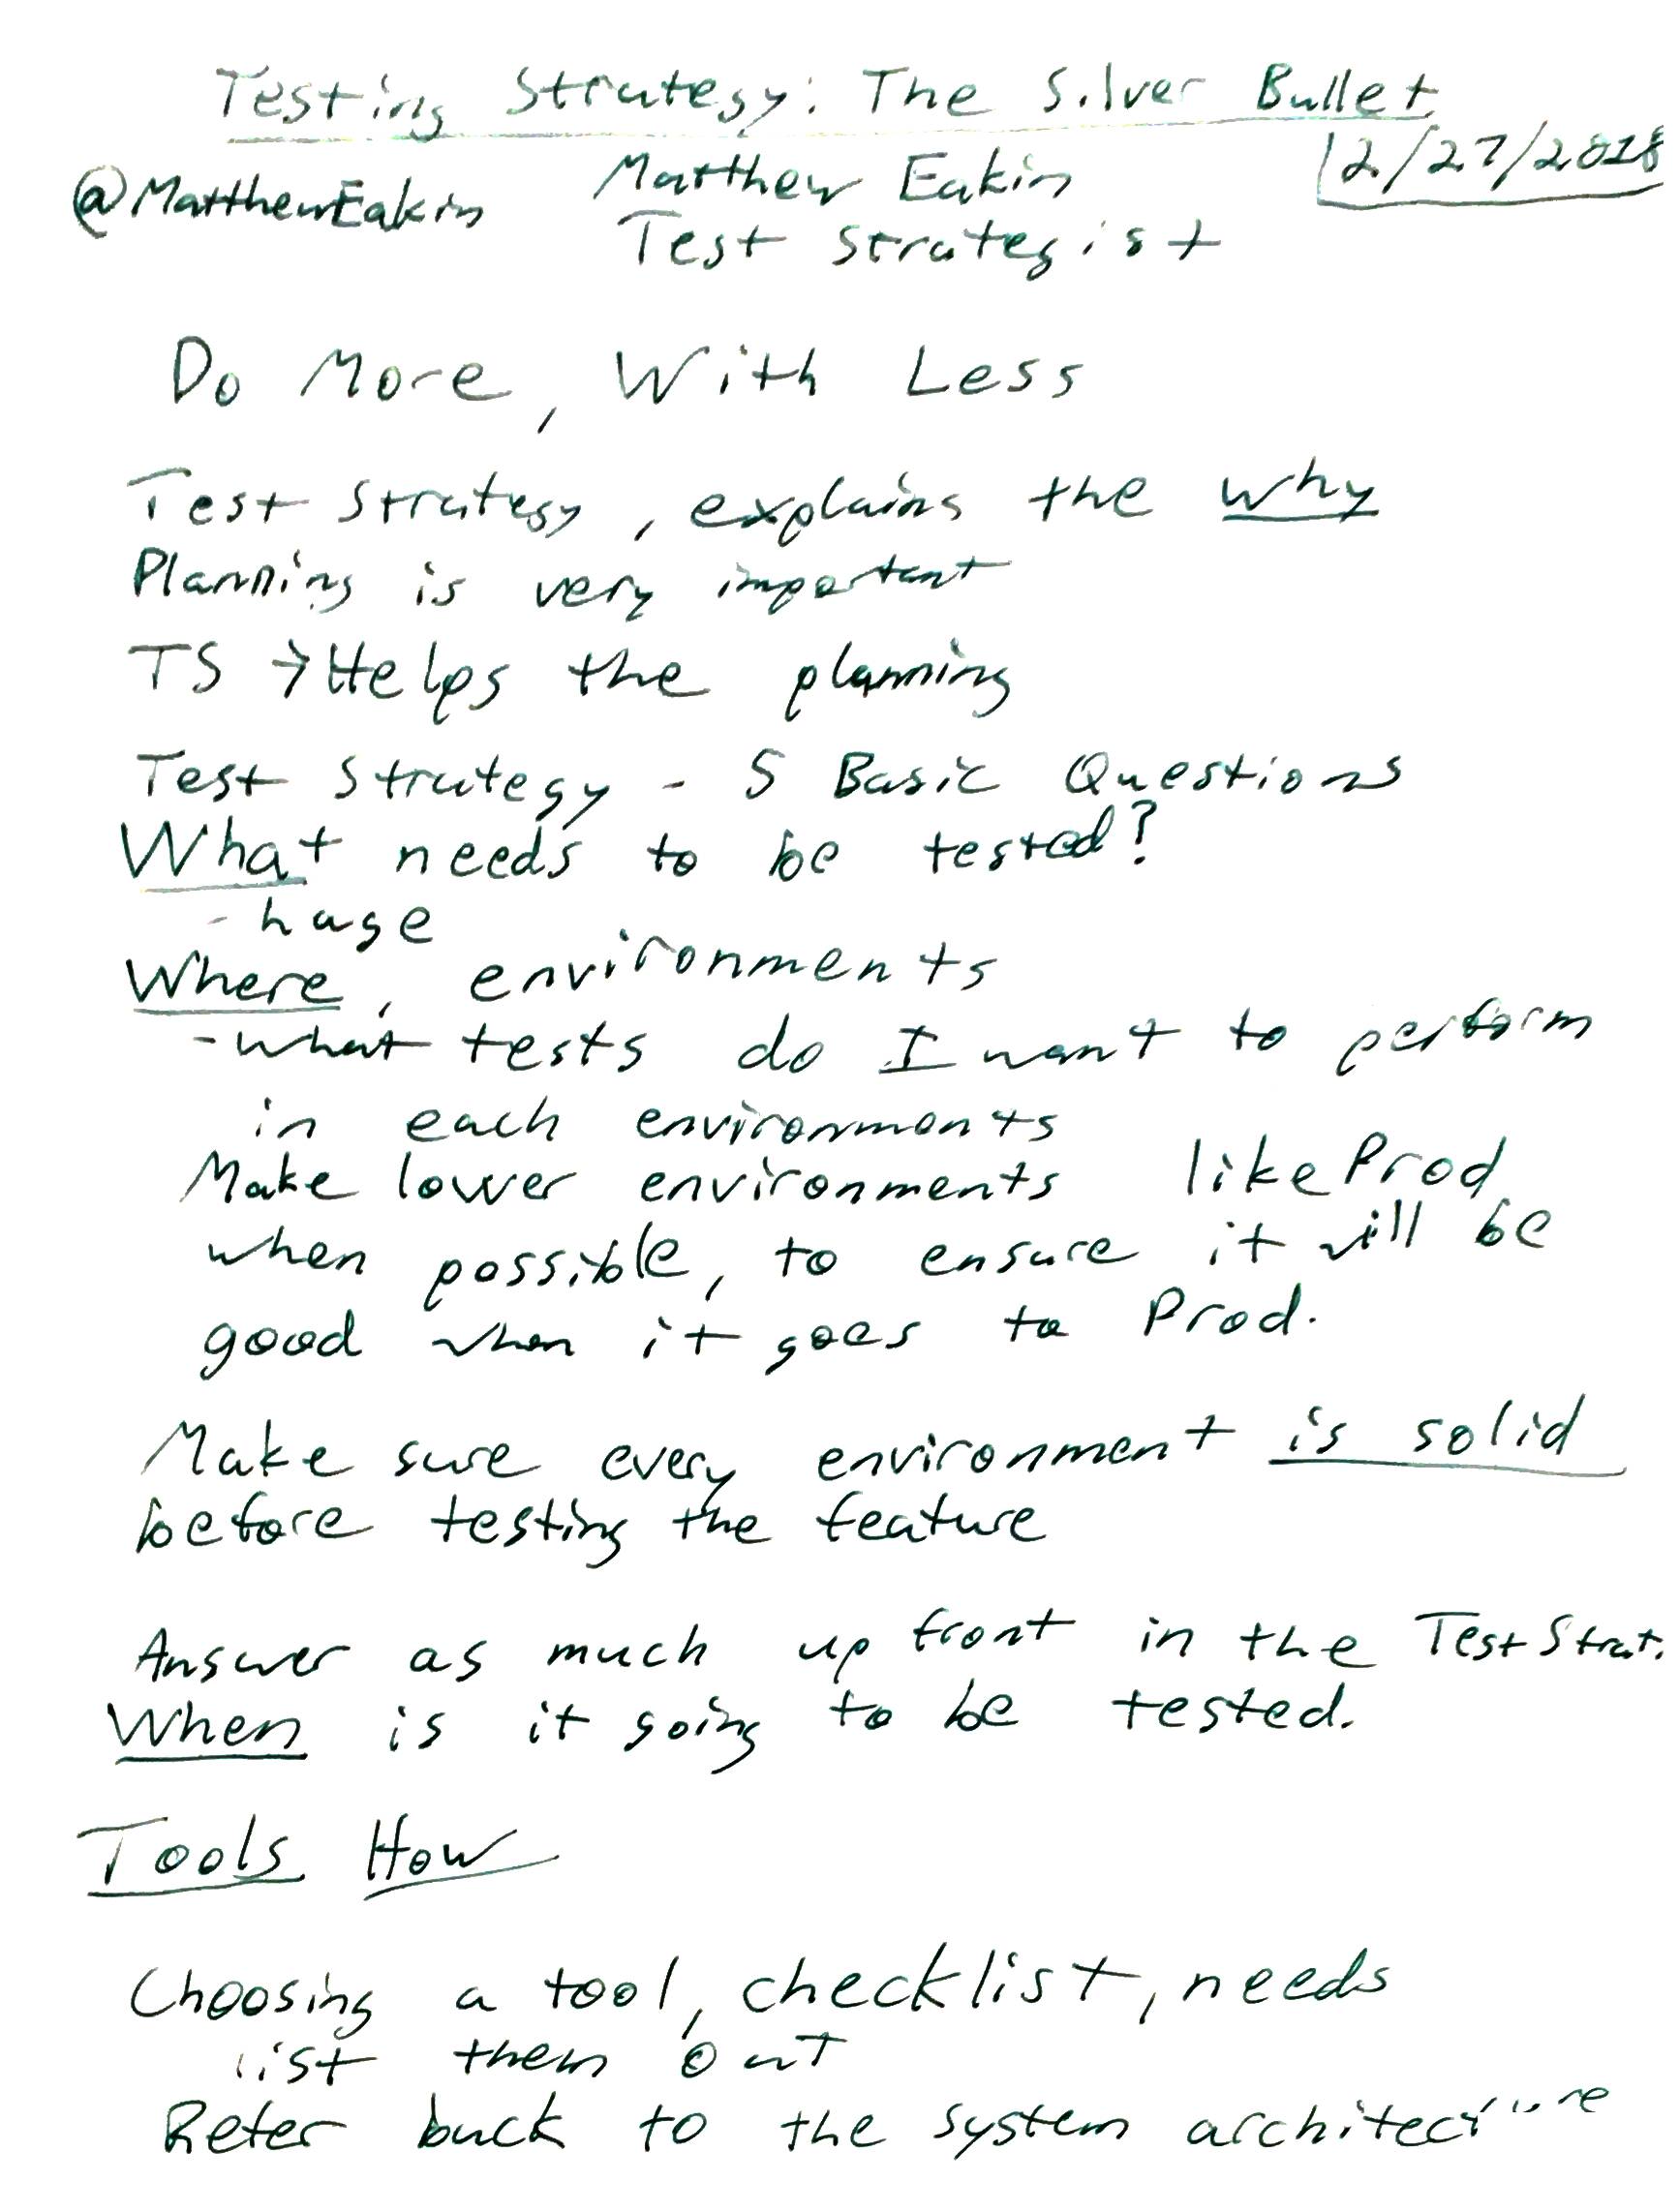 Testing Strategy: The Silver Bullet
12/27/2018
@MatthewEakin Matthew Eakin
Test Strategist
Do More, With Less
Test Strategy, explains the why
Planning is very important
TS → Helps the planning
Test Strategy - 5 Basic Questions
What needs to be tested?
- huge
Where, environments
- what tests do I want to perform
in each environments
Make lower environments like Prod
when possible, to ensure it will be
good when it goes to Prod.
Make sure every environment is solid
before testing the feature
Answer as much up front in the Test Strat.
When is it going to be tested.
Tools How
Choosing a tool, checklist, needs
list them out
Refer back to the system architecture